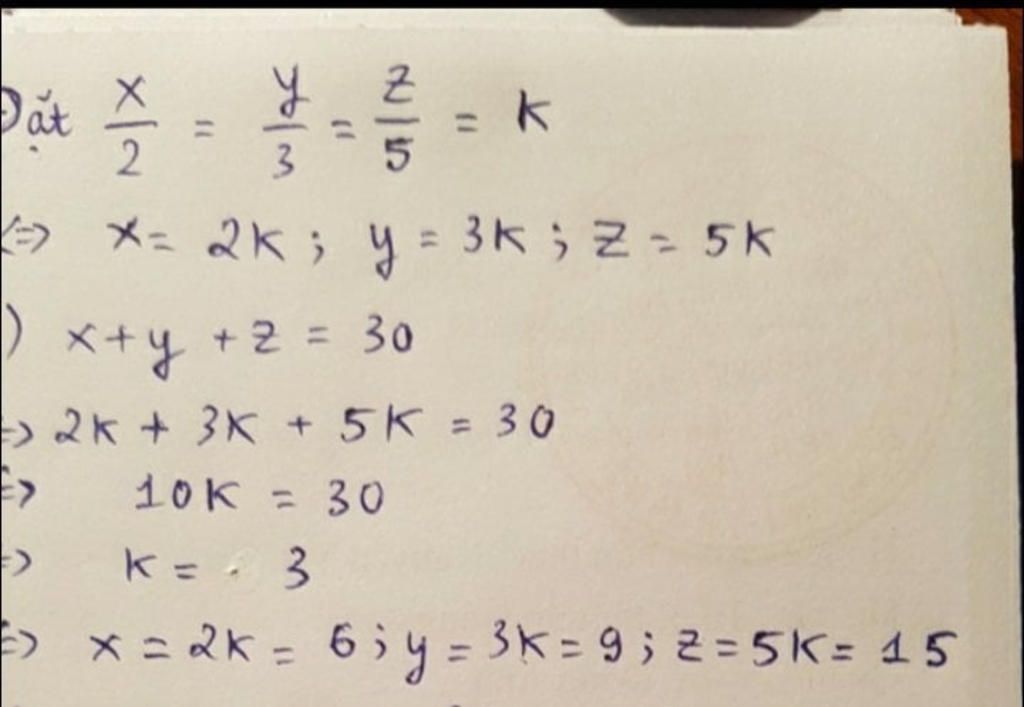 Đặt x/2 = y/3 = z/5 = K
<=> x = 2K ; y = 3K ; z = 5K
) x + y + z = 30
=> 2K + 3K + 5K = 30
=> 10K = 30
=> K = 3
=> x = 2K = 6 ; y = 3K = 9 ; z = 5K = 15